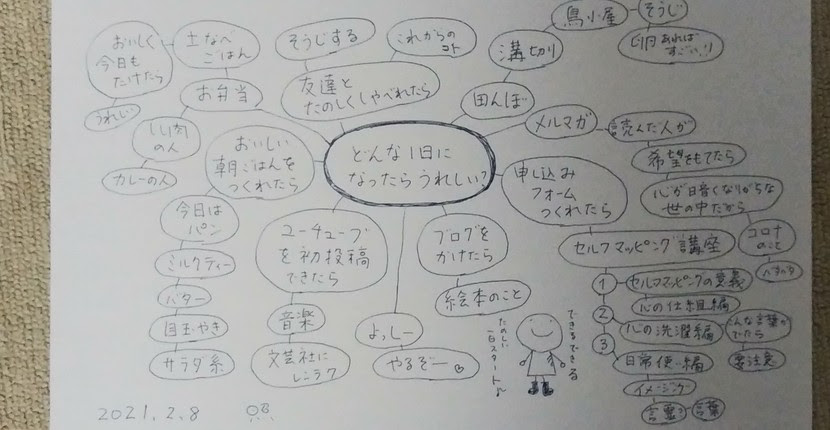 どんな1日に
なったらうれしい?
友達と
たのしくしゃべれたら
そうじする
これからの
コト
田んぼ
溝切り
鳥小屋
そうじ
卵あれば
すごい!!
メルマガ
読んだ人が
希望をもてたら
心が暗くなりがちな
世の中だから
コロナ
のこと
申し込み
フォーム
つくれたら
セルフマッピング講座
1
セルフマッピングの意義
心の仕組編
2
心の洗濯編
3
日常使い編
イメージング
言霊?
言葉
でたら
要注意
ブログを
かけたら
絵本のこと
よっしー
やるぞー♡
ユーチューブ
を初投稿
できたら
音楽
文芸社に
レンラク
おいしい
朝ごはんを
つくれたら
今日は
パン
ミルクティー
バター
目玉やき
サラダ系
お弁当
土なべ
ごはん
おいしく
今日も
たけたら
うれしい
しし肉
の人
カレーの人
できるできる
たのしい
一日スタート♪
2021.2.8